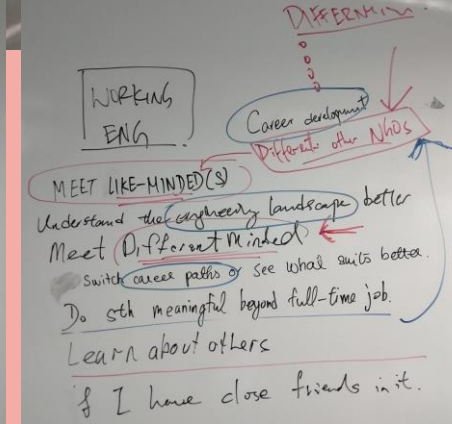 DIFFERENTIATION
WORKING
ENG
Career development
Different other NGOs
MEET LIKE-MINDED(S)
Understand the engineering landscape better
Meet Different Minded
Switch career paths or see what suits better.
Do sth meaningful beyond full-time job.
Learn about others
if I have close friends in it.